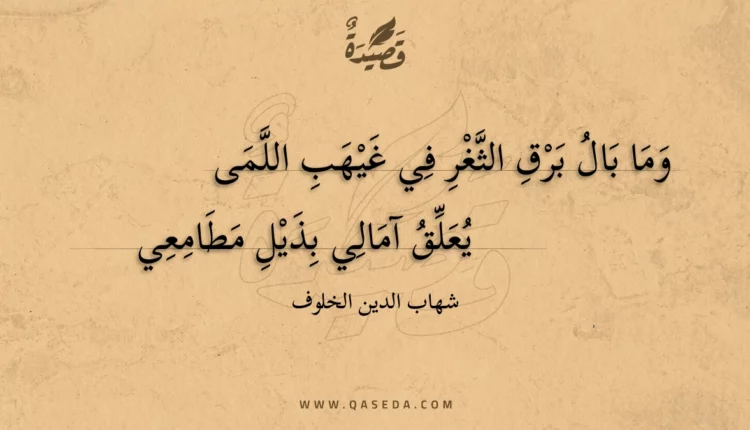 قَصِيدَةٌ
وَمَا بَالُ بَرْقِ الثَّغْرِ فِي غَيْهَبِ اللَّمَى
يُعَلِّقُ آمَالِي بِذَيْلِ مَطَامِعِي
شهاب الدين الخلوف
WWW.QASEDA.COM